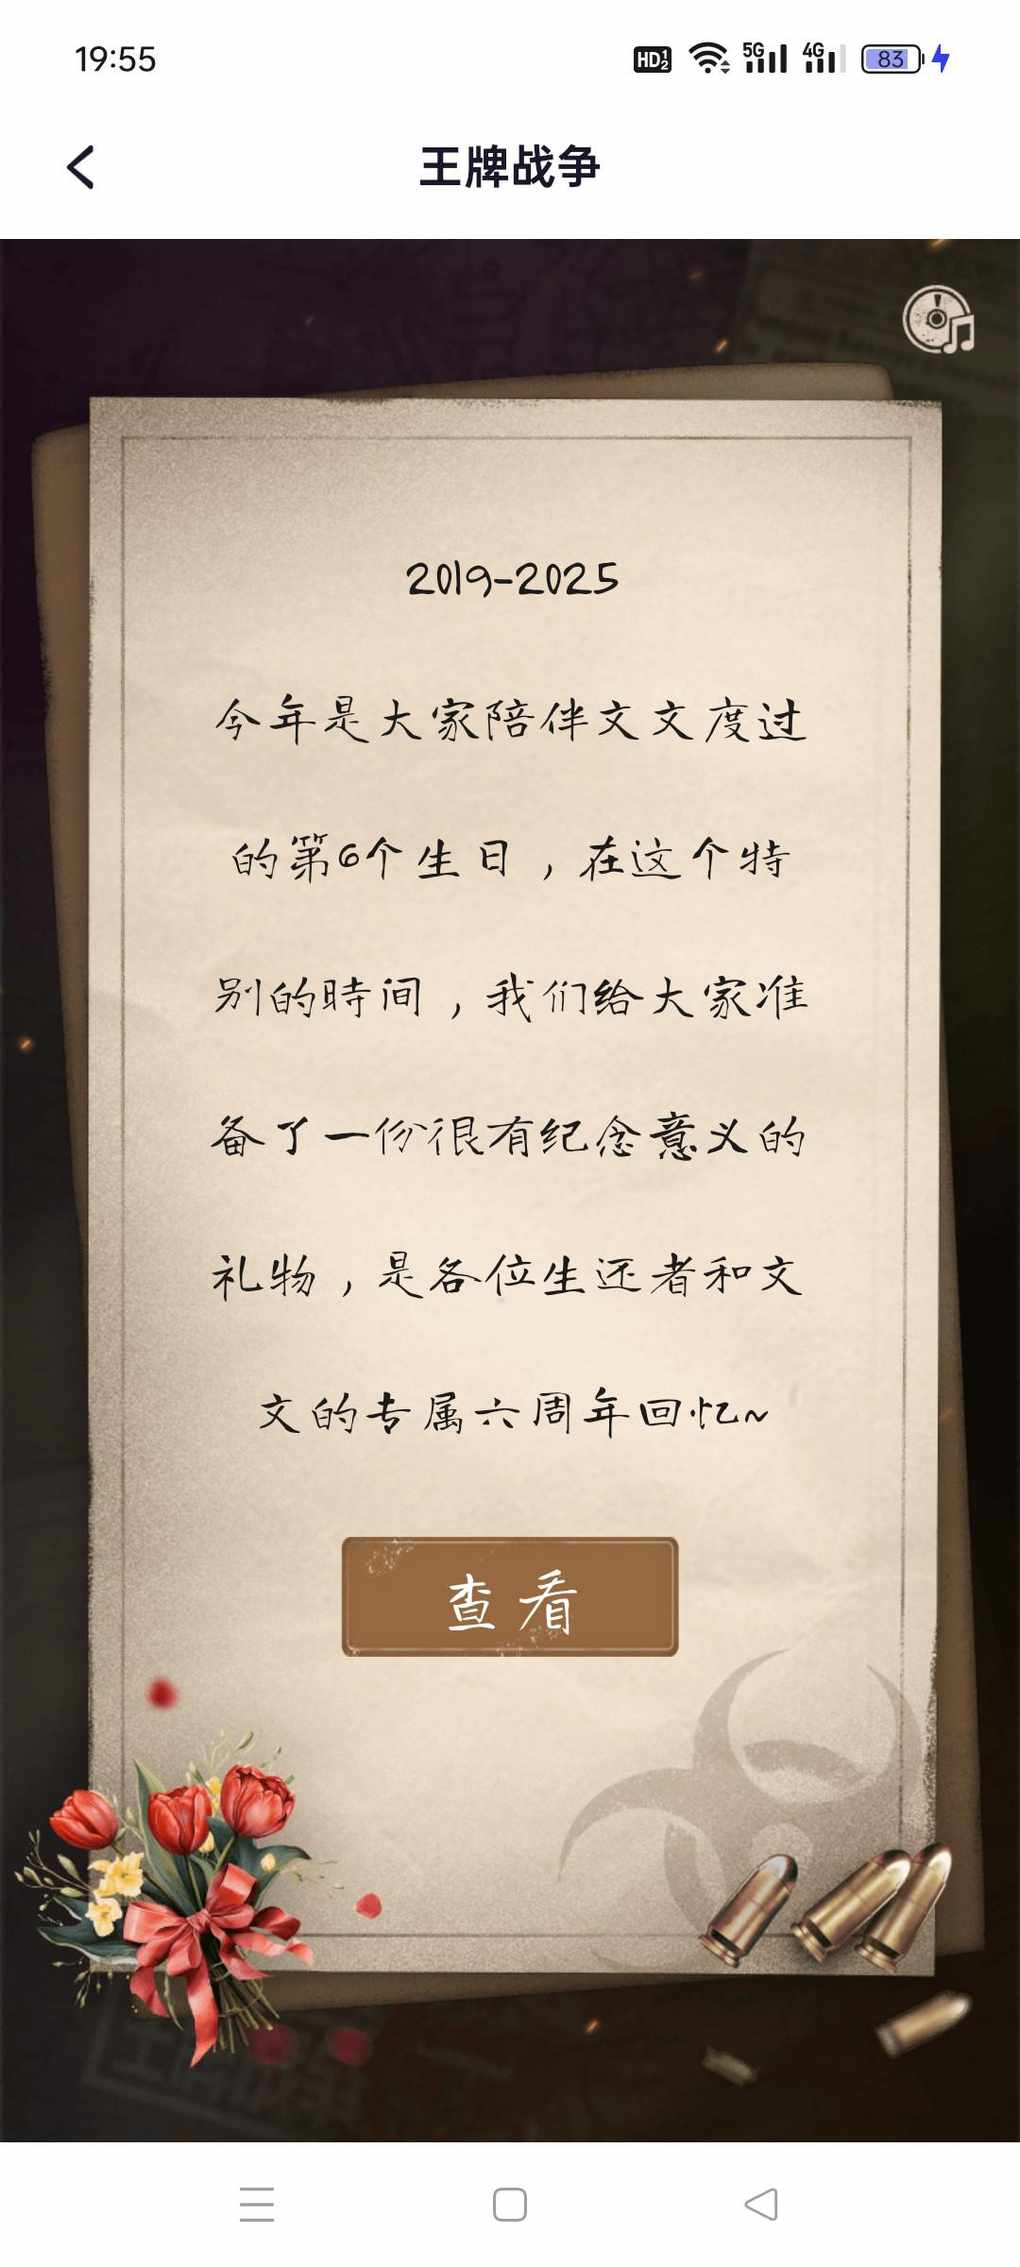 19:55
HD 1 2 5G 4G 83
王牌战争
2019-2025
今年是大家陪伴文文度过
的第6个生日，在这个特
别的時间，我们给大家准
备了一份很有纪念意义的
礼物，是各位生还者和文
文的专属六周年回忆~
查看